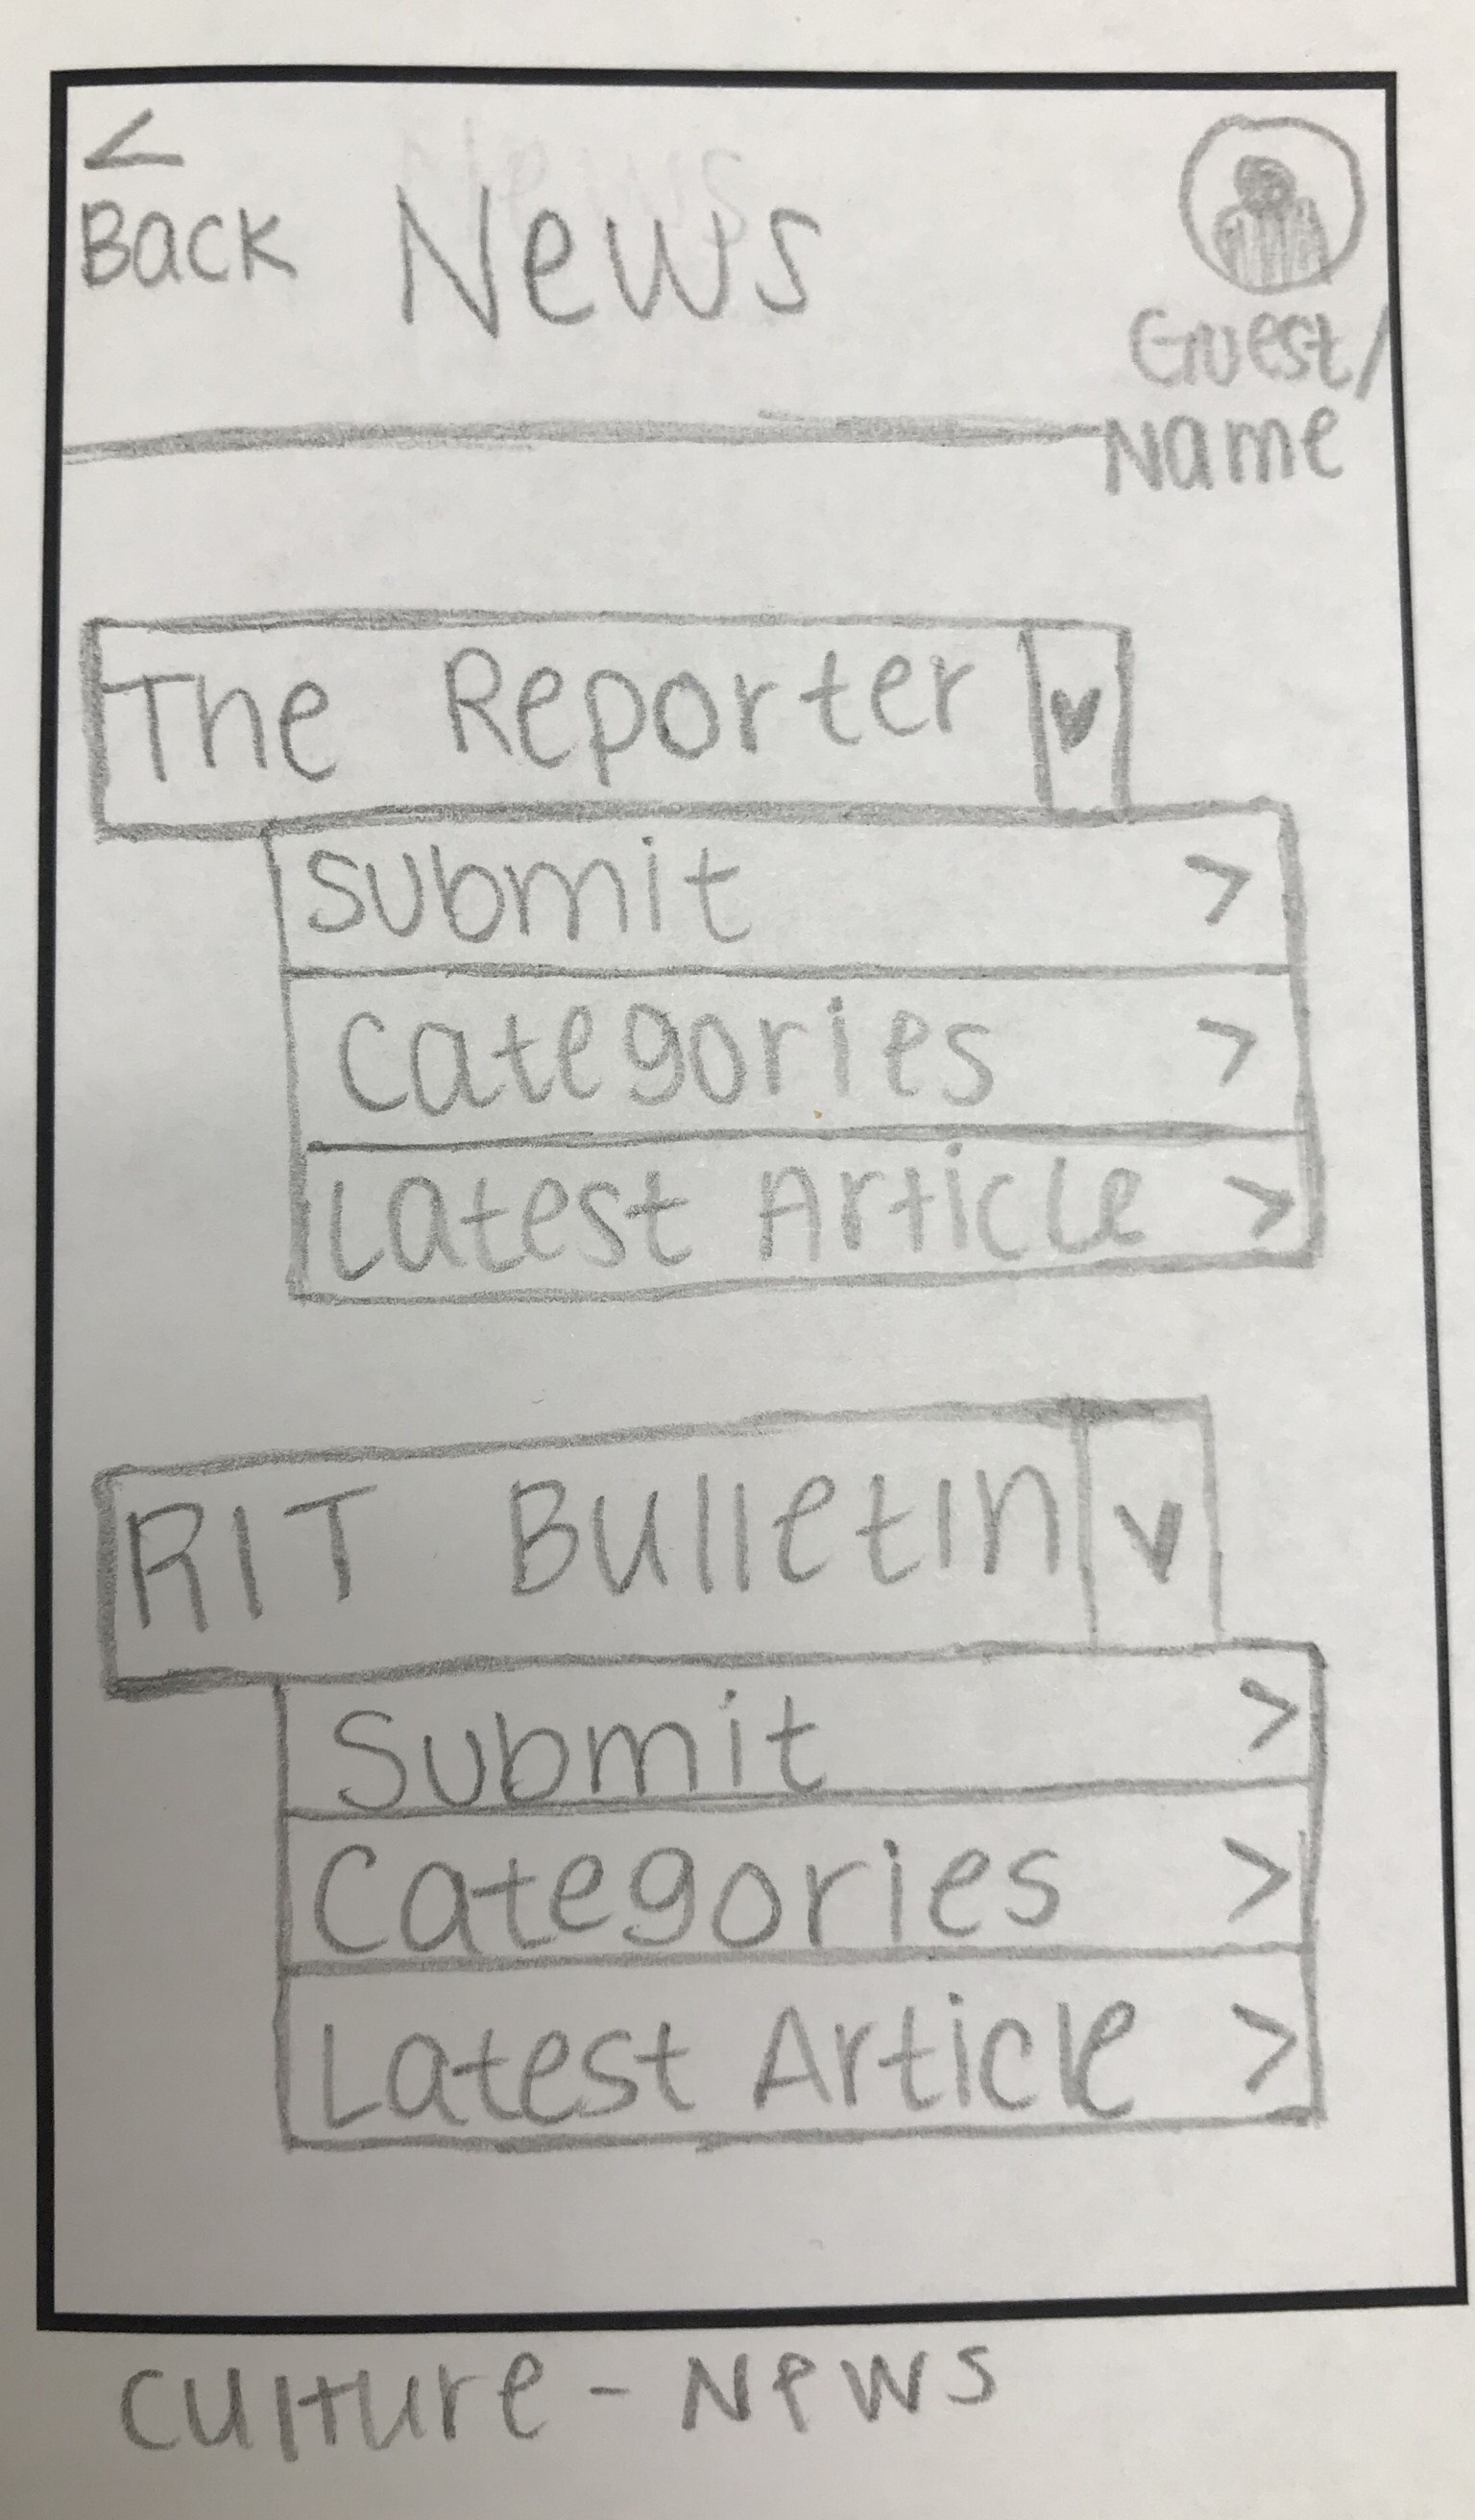 <
Back News
Guest/
Name
The Reporter v
Submit >
Categories >
Latest Article >
RIT Bulletin v
Submit >
Categories >
Latest Article >
Culture - News